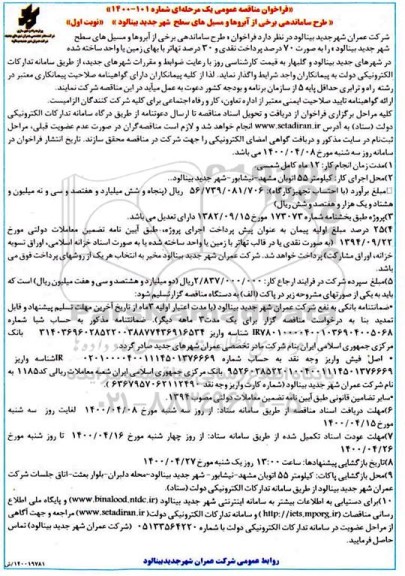 «فراخوان مناقصه عمومی یک مرحله‌ای شماره ۱۰۱-۱۴۰۰»
« طرح ساماندهی برخی از آبروها و مسیل های سطح شهر جدید بینالود » «نوبت اول»
شرکت عمران شهر جدید بینالود در نظر دارد فراخوان « طرح ساماندهی برخی از آبروها و مسیل های سطح
شهر جدید بینالود » را به صورت ۷۰ درصد پرداخت نقدی و ۳۰ درصد تهاتر با بهای زمین یا واحد ساخته شده
در شهرهای جدید بینالود و گلبهار به قیمت کارشناسی روز با رعایت ضوابط و مقررات شهرهای جدید، از طریق سامانه تدارکات
الکترونیکی دولت به پیمانکاران واجد شرایط واگذار نماید. لذا از کلیه پیمانکاران دارای گواهینامه صلاحیت پیمانکاری معتبر در
رشته راه و ترابری حداقل پایه ۵ از سازمان برنامه و بودجه کشور دعوت به عمل می‌آید در این مناقصه شرکت نمایند.
ارائه گواهینامه تایید صلاحیت ایمنی معتبر از اداره تعاون، کار و رفاه اجتماعی برای کلیه شرکت کنندگان الزامیست.
کلیه مراحل برگزاری فراخوان از دریافت و تحویل اسناد مناقصه تا ارسال دعوتنامه از طریق درگاه سامانه تدارکات الکترونیکی
دولت (ستاد) به آدرس www.setadiran.ir انجام خواهد شد و لازم است مناقصه‌گران در صورت عدم عضویت قبلی، مراحل
ثبت‌نام در سایت مذکور و دریافت گواهی امضای الکترونیکی را جهت شرکت در مناقصه محقق سازند. تاریخ انتشار فراخوان در
سامانه روز سه شنبه مورخ ۱۴۰۰/۰۴/۰۸ می باشد.
۱)مدت زمان انجام کار: ۱۲ ماه کامل شمسی
۲)محل اجرای کار: کیلومتر ۵۵ اتوبان مشهد-نیشابور-شهر جدید بینالود.
مبلغ برآورد (با احتساب تجهیز کارگاه): ۵۶/۷۳۹/۰۸۱/۷۰۶ ریال (پنجاه و شش میلیارد و هفتصد و سی و نه میلیون و
هشتاد و یک هزار و هفتصد و شش ریال)
۳)پروژه طبق بخشنامه شماره ۱۷۳۰۷۳ مورخ ۱۳۸۲/۰۹/۱۵ دارای تعدیل می باشد.
۴)۲۵ درصد مبلغ اولیه پیمان به عنوان پیش پرداخت اجرای پروژه، طبق آیین نامه تضمین معاملات دولتی مورخ
۱۳۹۴/۰۹/۲۲ (به صورت نقدی یا در قالب تهاتر با زمین یا واحد ساخته شده یا به صورت اسناد خزانه اسلامی، اوراق تسویه
خزانه، اوراق مشارکت) پرداخت خواهد شد. شرکت عمران شهر جدید بینالود مخیر به انتخاب هر یک از روشهای پرداخت فوق می
باشد.
۵)مبلغ سپرده شرکت در فرایند ارجاع کار: ۲/۸۳۷/۰۰۰/۰۰۰ ریال (دو میلیارد و هشتصد و سی و هفت میلیون ریال) است که
باید به یکی از صورتهای مشروحه زیر در پاکت (الف) به دستگاه مناقصه گزار تسلیم شود:
۶)مهلت دریافت اسناد مناقصه از طریق سامانه ستاد: از روز سه شنبه مورخ ۱۴۰۰/۰۴/۰۸ لغایت روز سه شنبه
مورخ ۱۴۰۰/۰۴/۱۵
۷)مهلت عودت اسناد تکمیل شده از طریق سامانه ستاد: از روز چهار شنبه مورخ ۱۴۰۰/۰۴/۱۶ تا روز شنبه مورخ
۱۴۰۰/۰۴/۲۶
۸)تاریخ بازگشایی پیشنهادها: ساعت ۱۳:۰۰ روز یک شنبه مورخ ۱۴۰۰/۰۴/۲۷
۹)محل بازگشایی پاکات: کیلومتر ۵۵ اتوبان مشهد-نیشابور - شهر جدید بینالود-محله دلبران-بلوار بعثت-اتاق جلسات شرکت
عمران شهر جدید بینالود و از طریق سامانه تدارکات الکترونیکی دولت (ستاد).
۱۰)برای دستیابی به اطلاعات بیشتر به سامانه اینترنتی شهر جدید بینالود (www.binalood.ntdc.ir) و پایگاه ملی اطلاع
رسانی مناقصات (http://iets.mporg.ir) و سامانه تدارکات الکترونیکی دولت (www.setadiran.ir) مراجعه و جهت آگاهی
از مراحل عضویت در سامانه تدارکات الکترونیکی دولت با شماره ۰۵۱۳۳۵۶۴۲۲۰ (شرکت عمران شهر جدید بینالود) تماس
حاصل فرمایید.
روابط عمومی شرکت عمران شهرجدیدبینالود